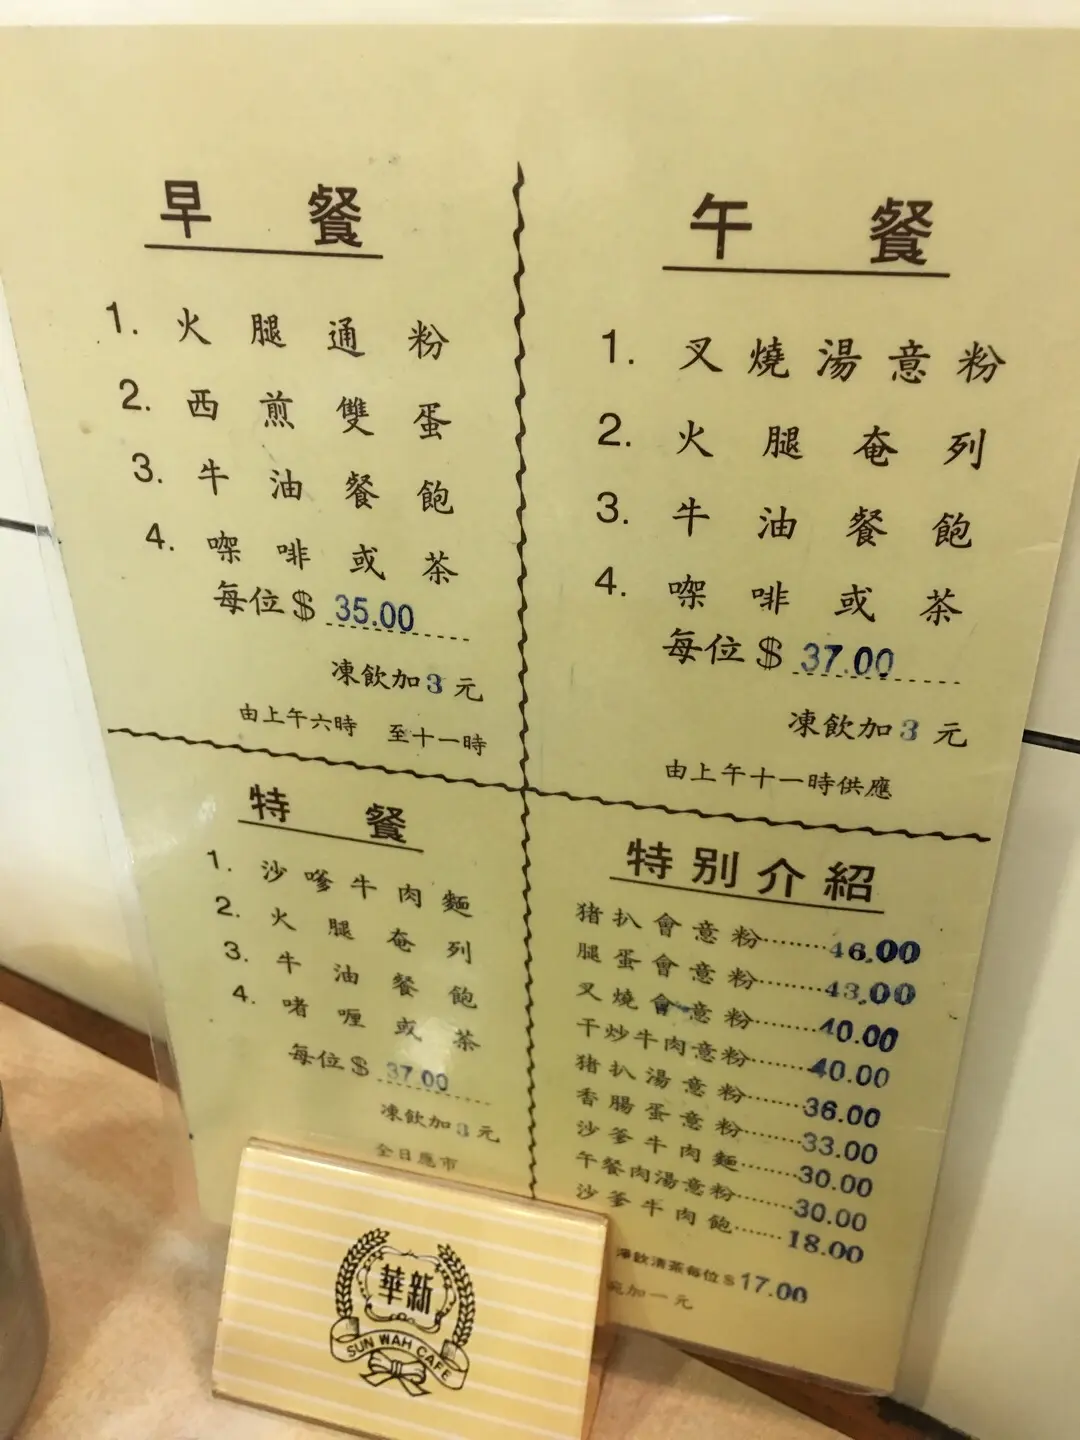 早餐
1. 火腿通粉
2. 西煎雙蛋
3. 牛油餐飽
4. 㗎啡或茶
每位$35.00
凍飲加3元
由上午六時 至十一時
午餐
1. 叉燒湯意粉
2. 火腿奄列
3. 牛油餐飽
4. 㗎啡或茶
每位$37.00
凍飲加3元
由上午十一時供應
特餐
1. 沙嗲牛肉麵
2. 火腿奄列
3. 牛油餐飽
4. 啫喱或茶
每位$37.00
凍飲加3元
全日應市
特別介紹
猪扒會意粉........46.00
腿蛋會意粉........43.00
叉燒會意粉........40.00
干炒牛肉意粉........40.00
猪扒湯意粉........36.00
香腸蛋意粉........33.00
沙爹牛肉麵........30.00
午餐肉湯意粉........30.00
沙爹牛肉飽.......18.00
淨飲清茶每位$17.00
加一元
華新
SUN WAH CAFE